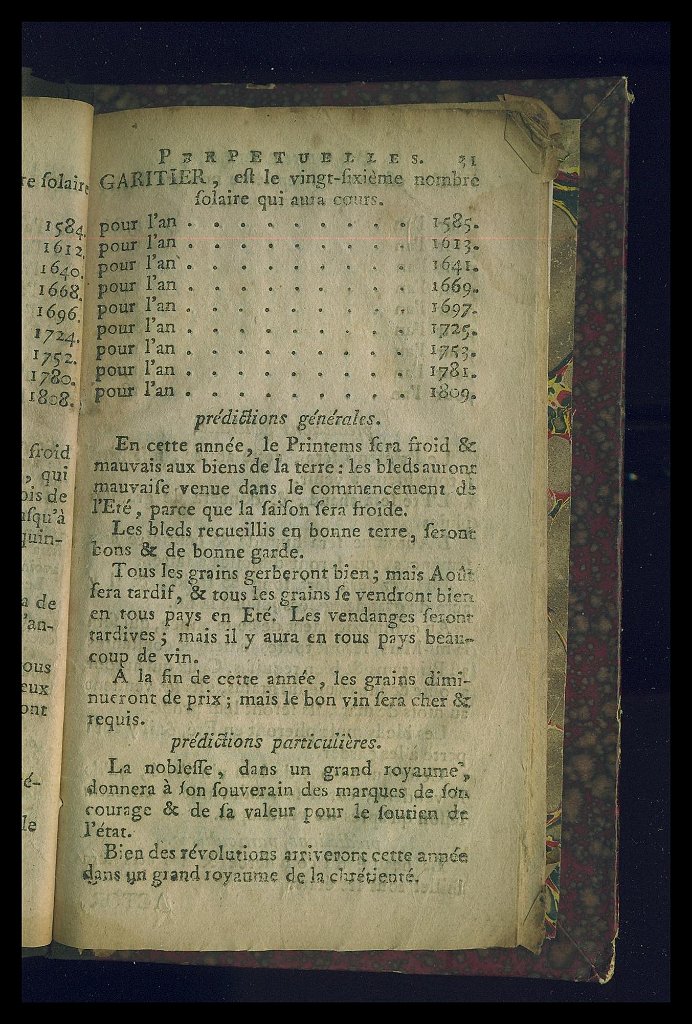 re solaire
1584.
1612.
1640.
1668.
1696.
1724.
1752.
1780.
1808.
froid
, qui
ois de
usqu'à
quin-
a de
'an-
ous
eux
ont
é-
le
PERPETUELLES. 31
GARITIER, eſt le vingt-ſixième nombre
ſolaire qui aura cours.
pour l'an . . . . . . . . . 1585.
pour l'an . . . . . . . . . 1613.
pour l'an . . . . . . . . . 1641.
pour l'an . . . . . . . . . 1669.
pour l'an . . . . . . . . . 1697.
pour l'an . . . . . . . . . 1725.
pour l'an . . . . . . . . . 1753.
pour l'an . . . . . . . . . 1781.
pour l'an . . . . . . . . . 1809.
prédictions générales.
En cette année, le Printems ſera froid &
mauvais aux biens de la terre : les bleds auront
mauvaiſe venue dans le commencement de
l'Eté, parce que la ſaiſon ſera froide.
Les bleds recueillis en bonne terre, ſeront
bons & de bonne garde.
Tous les grains gerberont bien ; mais Août
ſera tardif, & tous les grains ſe vendront bien
en tous pays en Eté. Les vendanges ſeront
tardives ; mais il y aura en tous pays beau-
coup de vin.
A la fin de cette année, les grains dimi-
nueront de prix ; mais le bon vin ſera cher &
requis.
prédictions particulières.
La nobleſſe, dans un grand royaume,
donnera à ſon ſouverain des marques de ſon
courage & de ſa valeur pour le ſoutien de
l'état.
Bien des révolutions arriveront cette année
dans un grand royaume de la chrétienté.